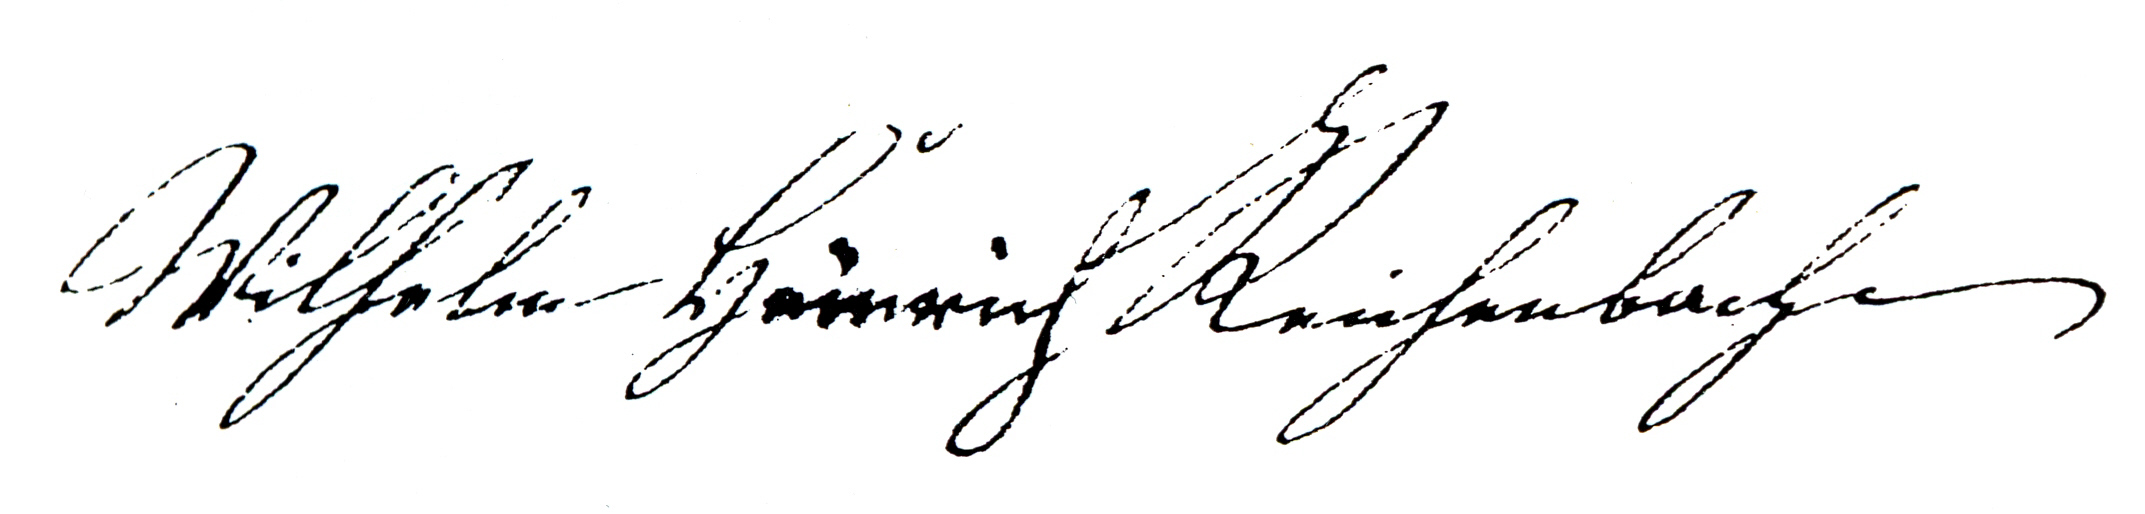 Wilhelm Heinrich Reichenbach